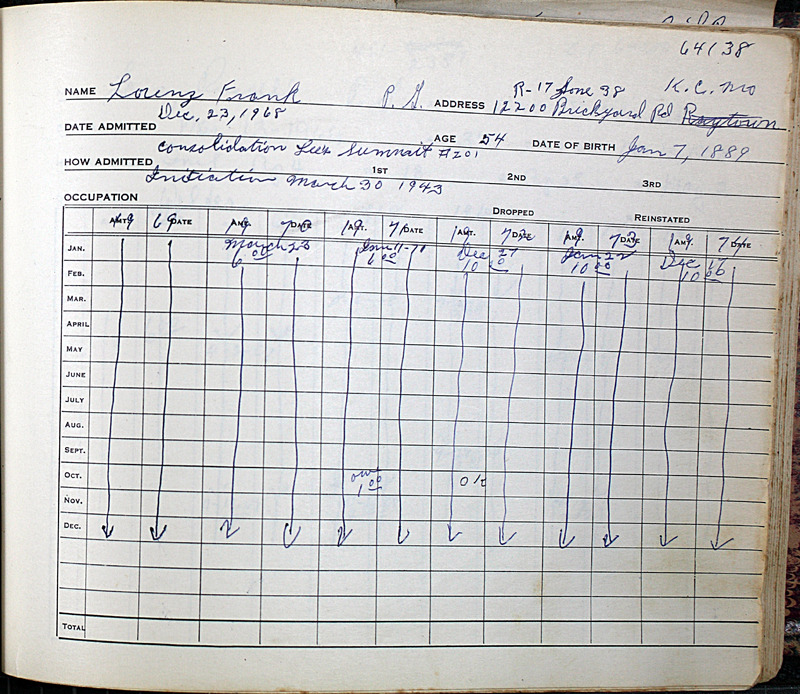 64138
R-17 June 38 K.C. Mo
NAME Lorenz Frank P.G. ADDRESS 12200 Brickyard Rd Raytown
Dec. 23, 1968
DATE ADMITTED AGE 54 DATE OF BIRTH Jan 7, 1889
consolidation Lee's Summitt #201
HOW ADMITTED 1ST 2ND 3RD
Indication March 30 1943
OCCUPATION
DROPPED REINSTATED
AMT. DATE AMT. DATE AMT. DATE AMT. DATE AMT. DATE AMT. DATE
69 69 72 73 74
JAN. March 23 Dec 27 Jan 22 Dec 16
FEB. 6 00 6 00 10 00 10 00 10 00
MAR.
APRIL
MAY
JUNE
JULY
AUG.
SEPT.
OCT. owe 1 00 OK
NOV.
DEC.
TOTAL